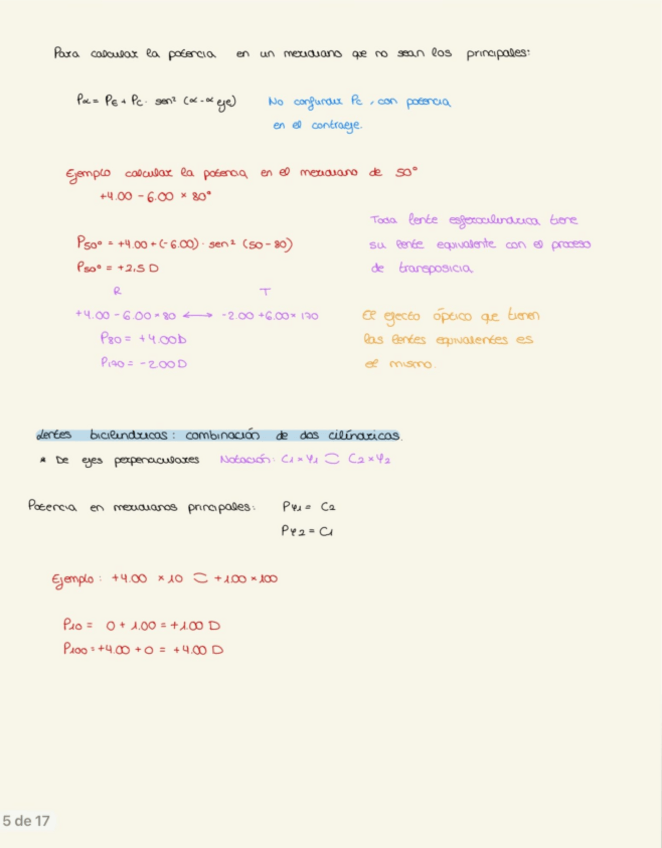 Para calcular la potencia en un meridiano que no sean los principales:
Pα = PE + PC · sen² (α - α eje)
No confundir PC, con potencia
en el contraeje.
Ejemplo calcular la potencia en el meridiano de 50°
+4.00 - 6.00 × 80°
P50° = +4.00 + (-6.00) · sen² (50 - 80)
P50° = +2,5 D
Toda lente esferocilíndrica tiene
su lente equivalente con el proceso
de transposicia
R T
+4.00 - 6.00 × 80 ⟷ -2.00 +6.00 × 170
P80 = +4.00D
P170 = -2.00D
El efecto óptico que tienen
las lentes equivalentes es
el mismo.
Lentes bicilíndricas: combinación de dos cilíndricas.
* De ejes perpendiculares Notación: C1 × Ψ1 ⁐ C2 × Ψ2
Potencia en meridianos principales: PΨ1 = C2
PΨ2 = C1
Ejemplo: +4.00 × 10 ⁐ +1.00 × 100
P10 = 0 + 1.00 = +1.00 D
P100 = +4.00 + 0 = +4.00 D
5 de 17